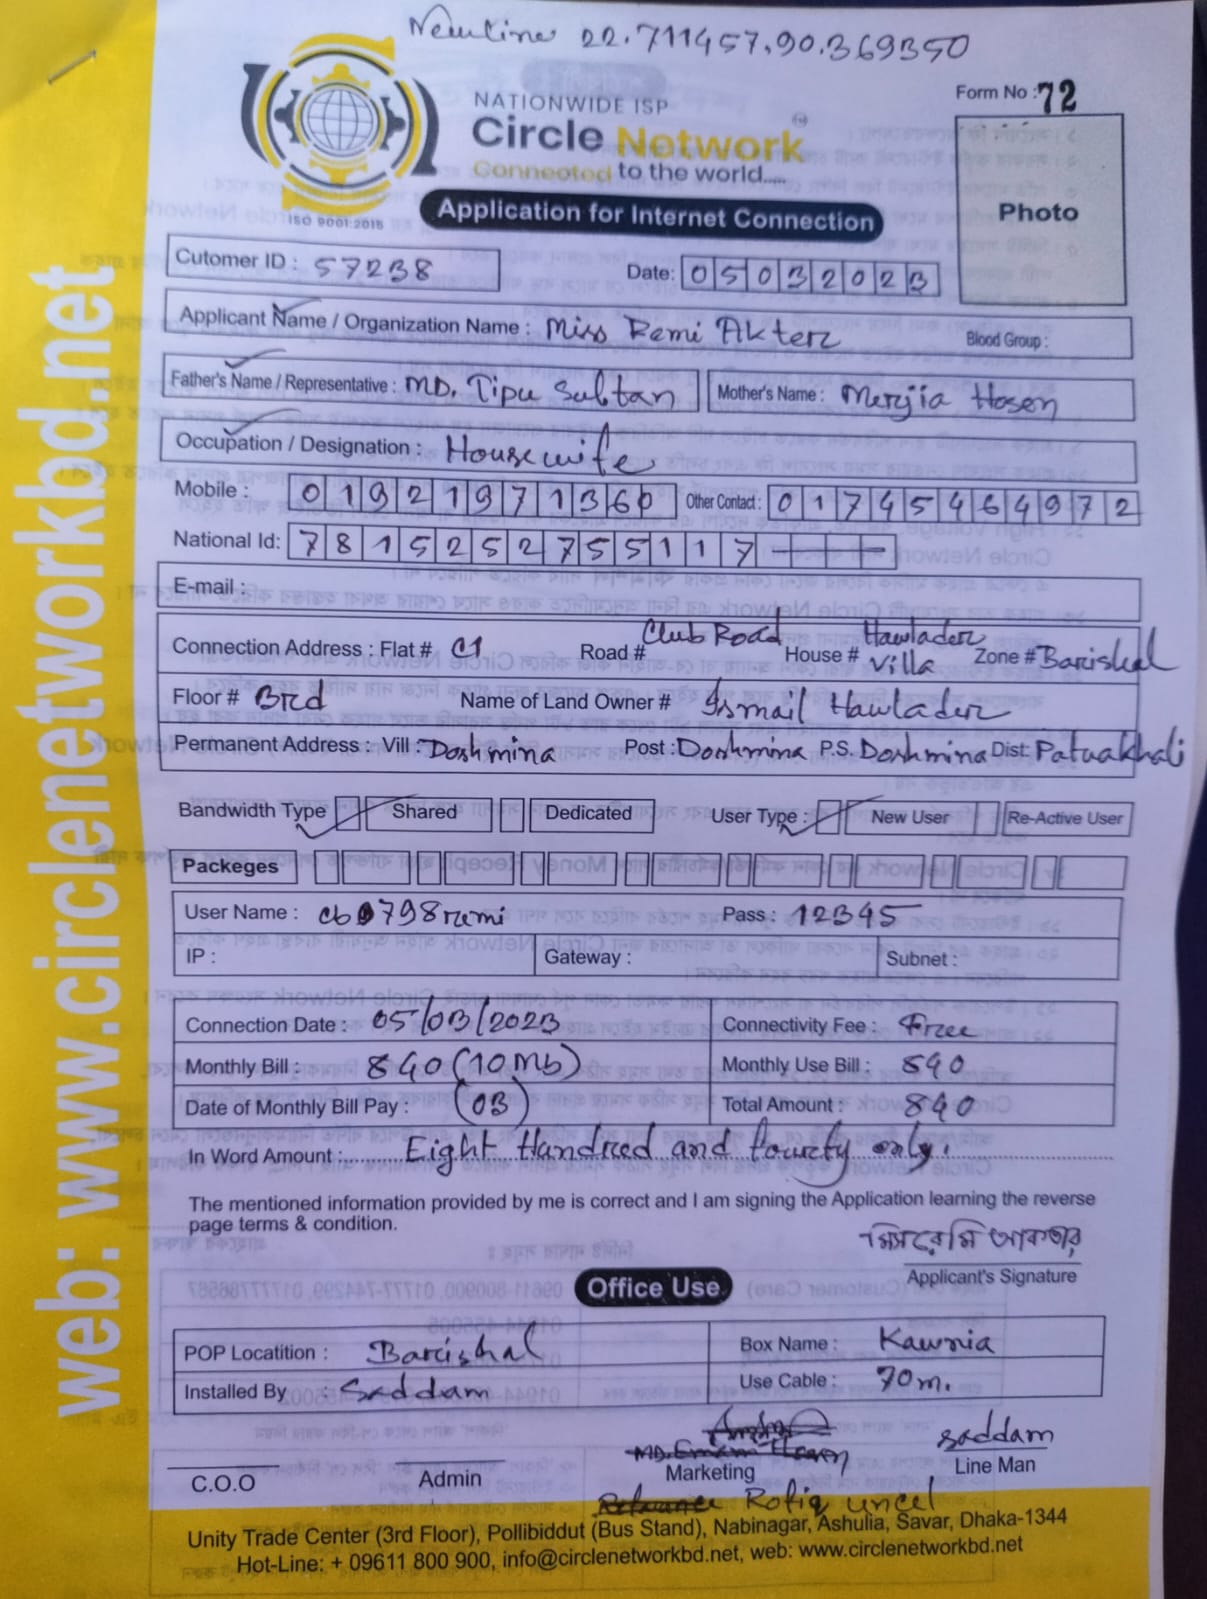 Newline 22.711457,90.369350
Form No : 72
NATIONWIDE ISP
Circle Network
Connected to the world.....
ISO 9001:2015
Application for Internet Connection
Photo
Cutomer ID : 57238
Date: 05032023
Applicant Name / Organization Name : Miss Remi Akter
Blood Group :
Father's Name / Representative : MD. Tipu Sultan
Mother's Name : Merjia Hosen
Occupation / Designation : Housewife
Mobile : 01921971360
Other Contact : 01745464972
National Id: 7815252755117
E-mail :
Connection Address : Flat # C1 Road # Club Road House # Hawlader Villa Zone # Barishal
Floor # 3rd Name of Land Owner # Ismail Hawlader
Permanent Address : Vill : Doshmina Post : Doshmina P.S. Doshmina Dist: Patuakhali
Bandwidth Type Shared Dedicated User Type : New User Re-Active User
Packeges
User Name : cb0798remi Pass : 12345
IP : Gateway : Subnet :
Connection Date : 05/03/2023 Connectivity Fee : Free
Monthly Bill : 840 (10Mb) Monthly Use Bill : 840
Date of Monthly Bill Pay : (03) Total Amount : 840
In Word Amount :..... Eight Handred and fourty only.
The mentioned information provided by me is correct and I am signing the Application learning the reverse
page terms & condition.
মিসরেমি আকতার
Applicant's Signature
Office Use
POP Locatition : Barishal Box Name : Kawnia
Installed By : Saddam Use Cable : 70 m.
saddam
C.O.O Admin Marketing Line Man
Rofiq uncel
Unity Trade Center (3rd Floor), Pollibiddut (Bus Stand), Nabinagar, Ashulia, Savar, Dhaka-1344
Hot-Line: + 09611 800 900, info@circlenetworkbd.net, web: www.circlenetworkbd.net
web: www.circlenetworkbd.net